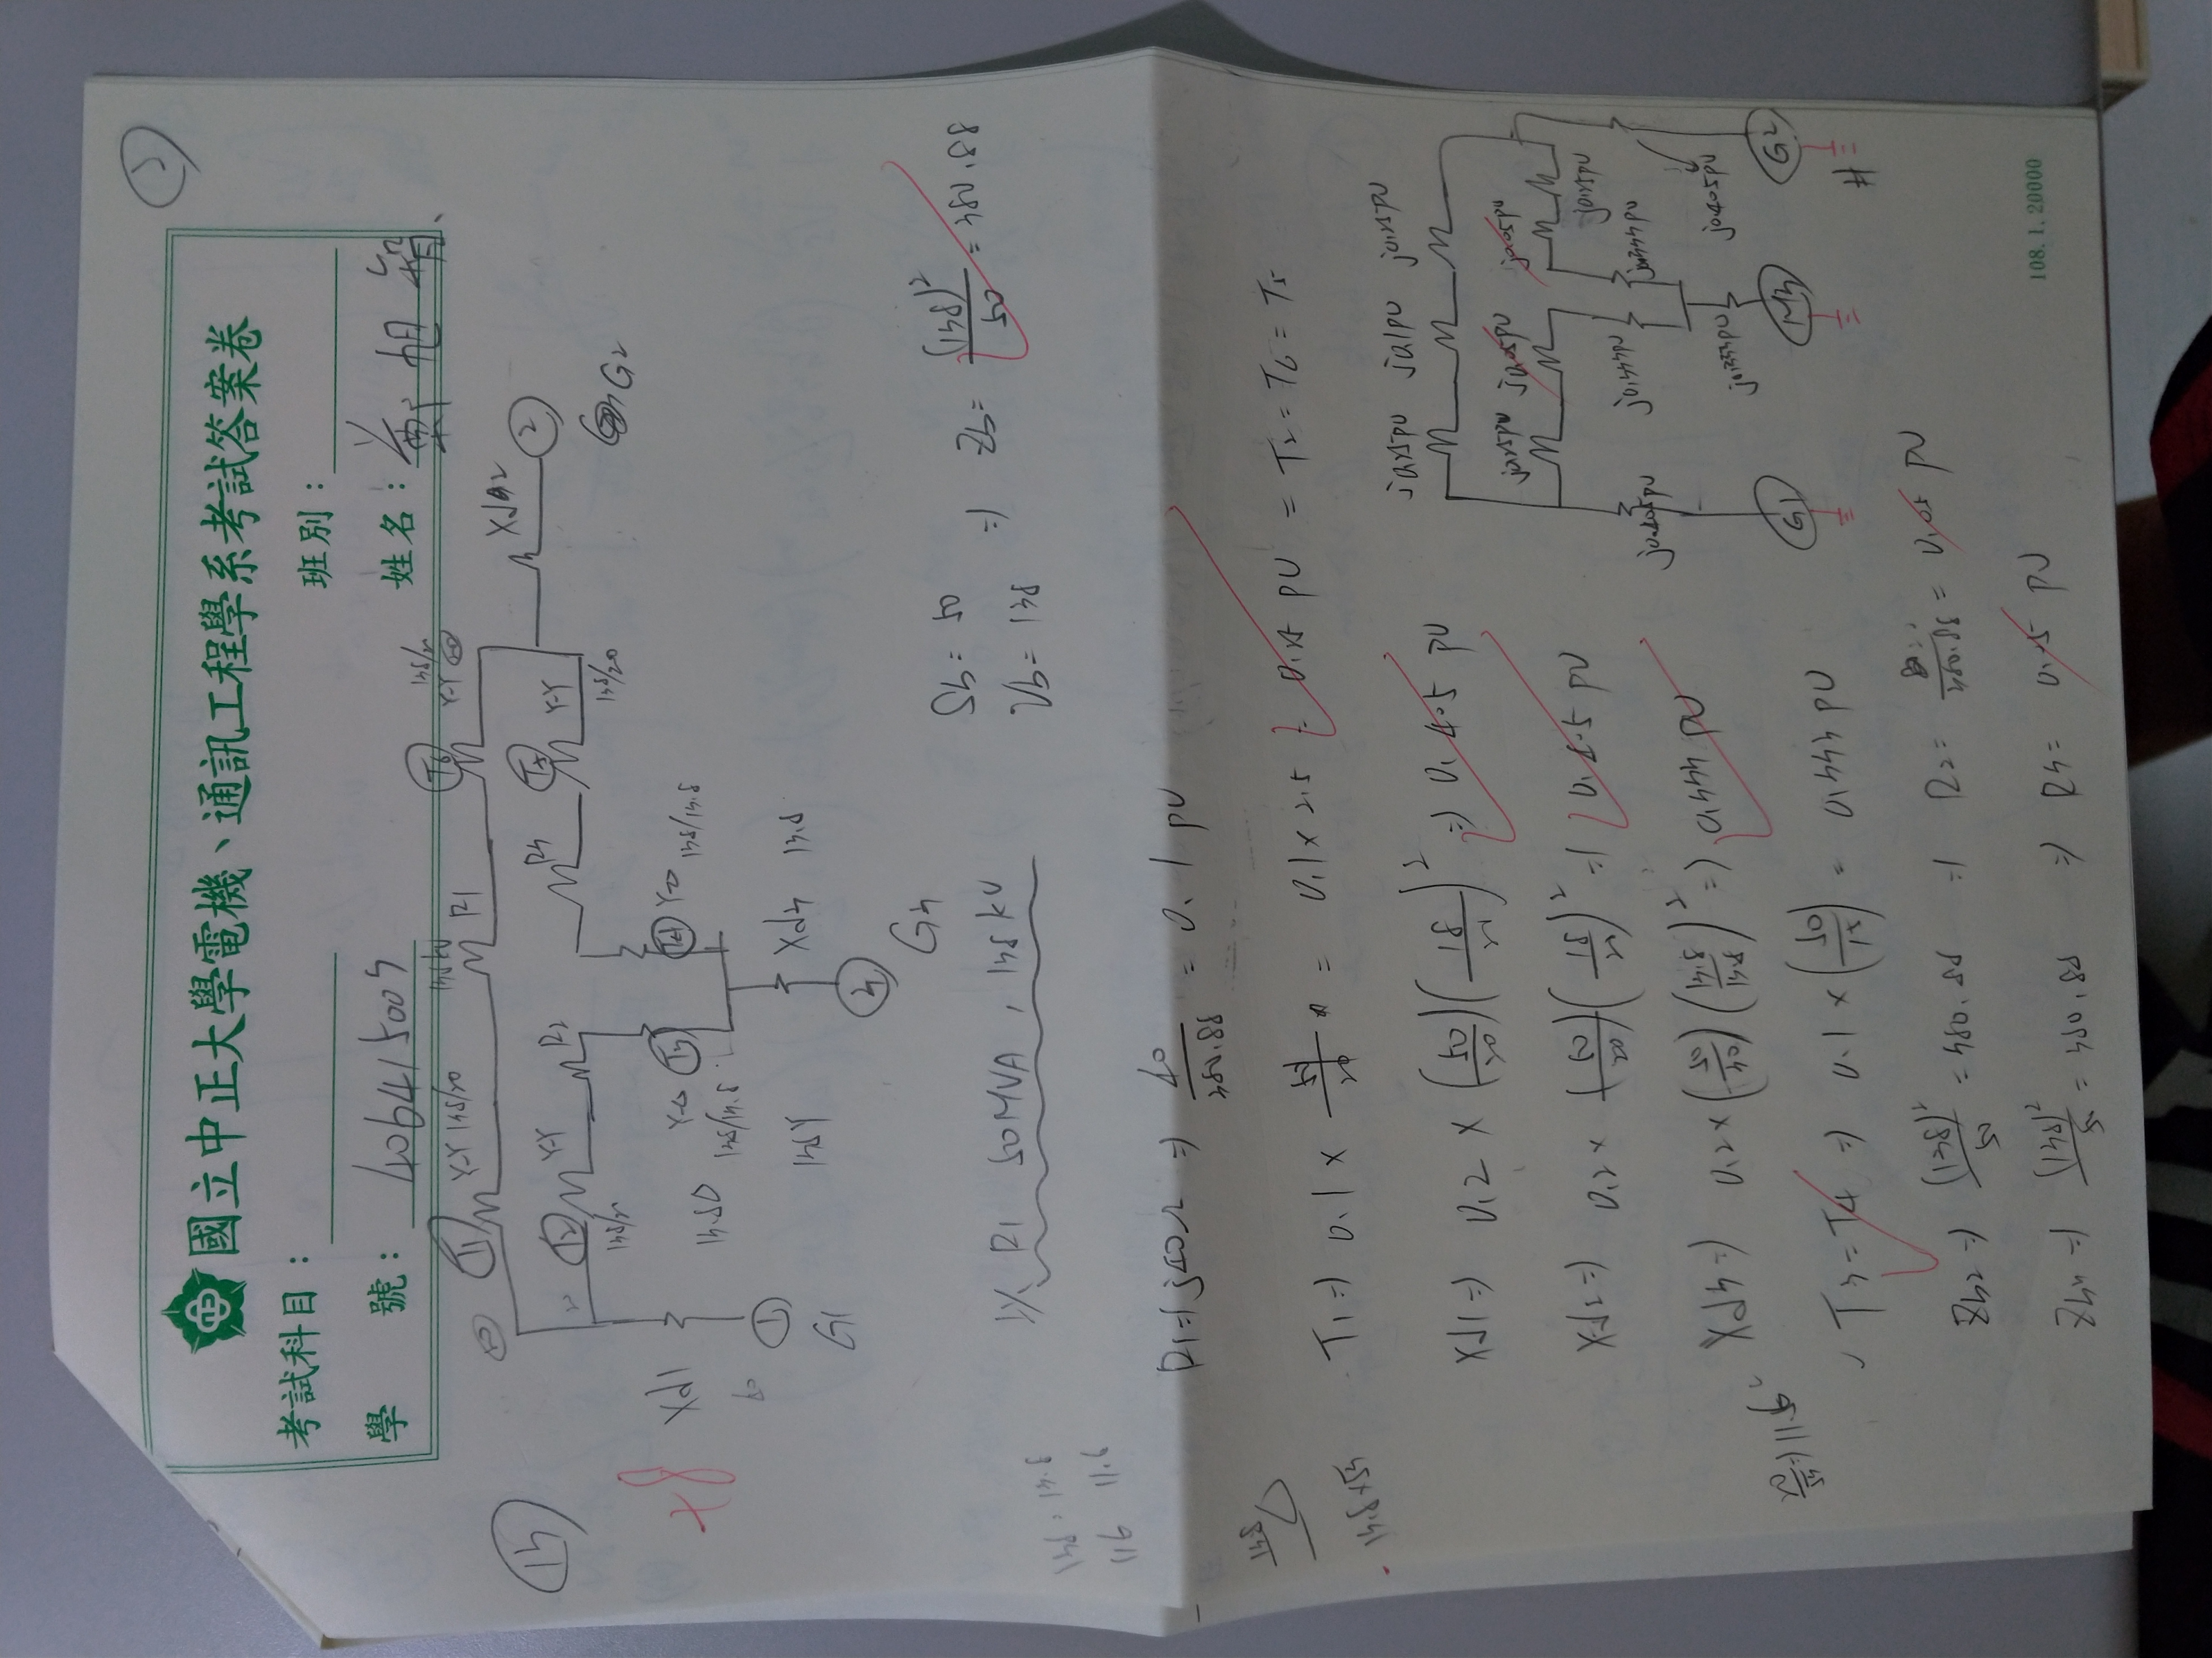 國立中正大學電機、通訊工程學系考試答案卷
考試科目：
班別：
學 號：
406415003
姓名：
旭
T1
Y-Y 138/20
138kV
R1
T6
138/20
Y-Y
13
T2
Y-Y
R2
138/20
R3
T5
Y-Y
138/20
Xd2
2
G2
+8
Xd1
13.8Δ
Y-Δ
T3
138/13.8
T4
Y-Δ
138/13.8
1
138Y
Xd3 13.8
G1
3
G3
Sb = 50
Vb = 138
⇒ Zb = (138)² / 50 = 380.88
以 R1 50MVA, 138kV
138 : 13.8
116 11.6
R1 ⇒ j40Ω ⇒ 40 / 380.88 = 0.1 pu
138
13.8×√3
T1 ⇒ 0.1 × 50/20 = 0.1 × 2.5 = 0.25 pu = T2 = T6 = T5
Xd1 ⇒ 0.2 × (50/20)(18/20)² ⇒ 0.405 pu
Xd2 ⇒ 0.2 × (50/20)(18/20)² ⇒ 0.405 pu
Xd3 ⇒ 0.2 × (50/30)(13.8/13.8)² ⇒ 0.333 pu
T3 = T4 ⇒ 0.1 × (50/15) = 0.333 pu
Zb2 ⇒ (138)²/50 = 380.88 ⇒ R2 = /380.88 = 0.05 pu
Zb3 ⇒ (138)²/50 = 380.88 ⇒ R3 = 0.05 pu
j0.25pu j0.1pu j0.25pu
j0.25pu j0.05pu j0.05pu
j0.25pu
j0.405pu j0.333pu j0.333pu
j0.333pu j0.405pu
G1 M3 G2
#
108.1.20000